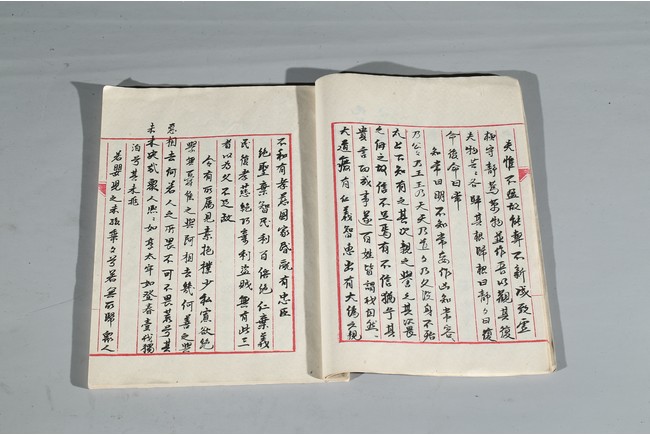 夫惟不盈故能弊不新成致虛
極守靜篤萬物並作吾以觀其復
夫物芸々各歸其根歸根曰靜々曰復
命復命曰常
知常曰明不知常妄作凶知常容
乃公々乃王王乃天天乃道々乃久沒身不殆
太上下知有之其次親之譽之其次畏
之侮之故信不足焉有不信猶兮其
貴言而成事遂百姓皆謂我自然
大道廢有仁義智惠出有大偽六親
不和有孝慈國家昏亂有忠臣
絕聖棄智民利百倍絕仁棄義
民復孝慈絕巧棄利盜賊無有此三
者以為文不足故
令有所屬見素抱樸少私寡欲絕
學無憂唯之與阿相去幾何善之與
惡相去何若人之所畏不可不畏荒兮其
未央哉眾人熙々如享太牢如登春臺我獨
泊兮其未兆
若嬰兒之未孩乘々兮若無所歸眾人